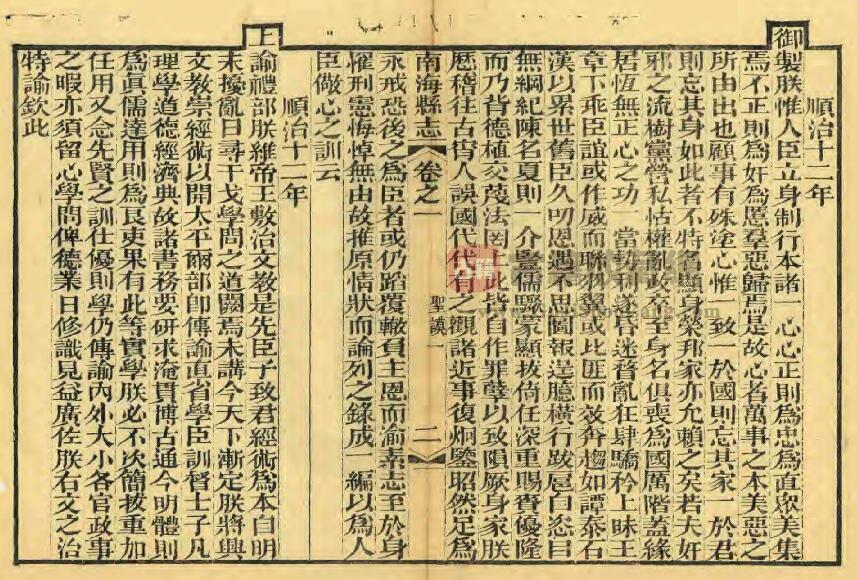 順治十二年
御製朕惟人臣立身制行本諸一心心正則爲忠爲直眾美集
焉不正則爲奸爲慝羣惡歸焉是故心者萬事之本美惡之
所由出也顧事有殊途心惟一致一於國則忘其家一於君
則忘其身如此者不特名顯身榮邦家亦允賴之矣若夫奸
邪之流樹黨營私怙權亂政卒至身名俱喪爲國厲階蓋緣
居恆無正心之功一當勢利遂昏迷瞀亂狂肆驕矜上昧王
章下乖臣誼或作威而聯羽翼或比匪而效奔趨如譚泰石
漢以累世舊臣久叨恩遇不思圖報逞臆橫行跋扈自恣目
無綱紀陳名夏則一介豎儒驟蒙顯拔倚任深重賜賚優隆
而乃背德植交蔑法罔上此皆自作罪孽以致隕厥身家朕
歷稽往古僉人誤國代代有之觀諸近事復炯鑒昭然足爲
南海縣志 卷之一 聖謨一 二
永戒恐後之爲臣者或仍蹈覆轍負主恩而渝素志至於身
罹刑憲悔悼無由故推原情狀而論列之錄成一編以爲人
臣儆心之訓云
順治十二年
上諭禮部朕維帝王敷治文教是先臣子致君經術爲本自明
末擾亂日尋干戈學問之道闕焉未講今天下漸定朕將興
文教崇經術以開太平爾部即傳諭直省學臣訓督士子凡
理學道德經濟典故諸書務要研求淹貫博古通今明體則
爲眞儒達用則爲良吏果有此等實學朕必不次簡拔重加
任用又念先賢之訓仕優則學仍傳諭內外大小各官政事
之暇亦須留心學問俾德業日修識見益廣佐朕右文之治
特諭欽此